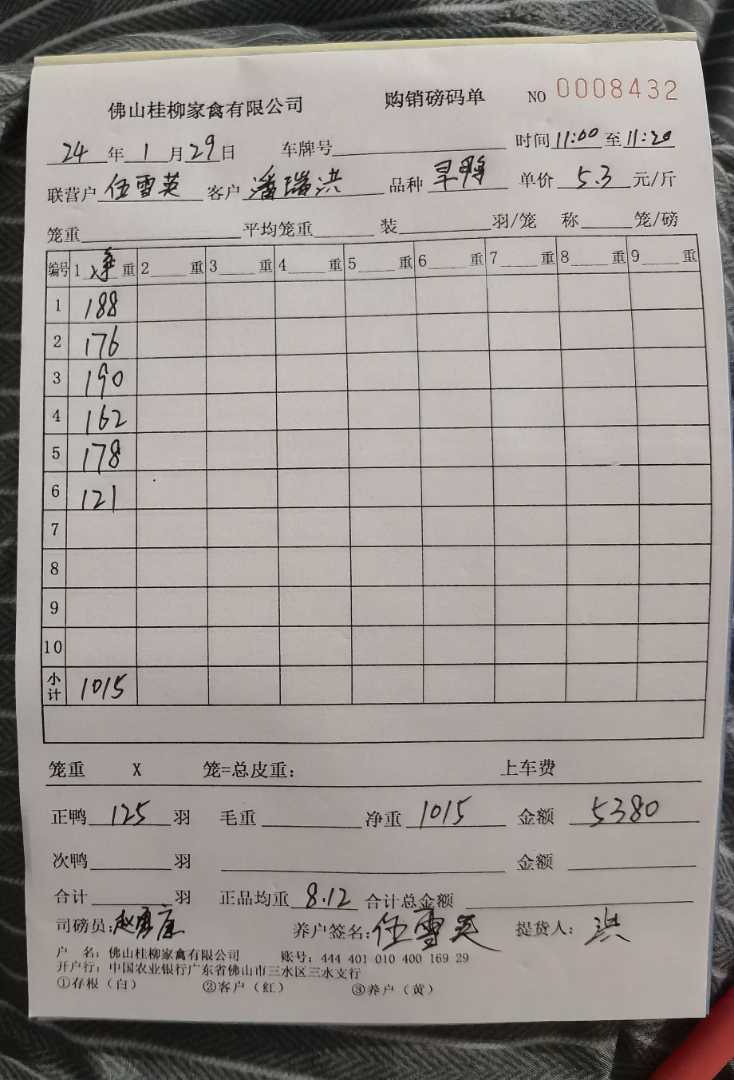 佛山桂柳家禽有限公司 购销磅码单 NO 0008432
24 年 1 月 29 日 车牌号 时间 11:00 至 11:20
联营户 伍雪英 客户 潘瑞洪 品种 旱鸭 单价 5.3 元/斤
笼重 平均笼重 装 羽/笼 称 笼/磅
编号 1 净 重 2 重 3 重 4 重 5 重 6 重 7 重 8 重 9 重
1 188
2 176
3 190
4 162
5 178
6 121
7
8
9
10
小计 1015
笼重 X 笼=总皮重: 上车费
正鸭 125 羽 毛重 净重 1015 金额 5380
次鸭 羽 金额
合计 羽 正品均重 8.12 合计总金额
司磅员: 养户签名: 伍雪英 提货人: 洪
户 名: 佛山桂柳家禽有限公司 账号: 444 401 010 400 169 29
开户行: 中国农业银行广东省佛山市三水区三水支行
①存根(白) ②客户(红) ③养户(黄)